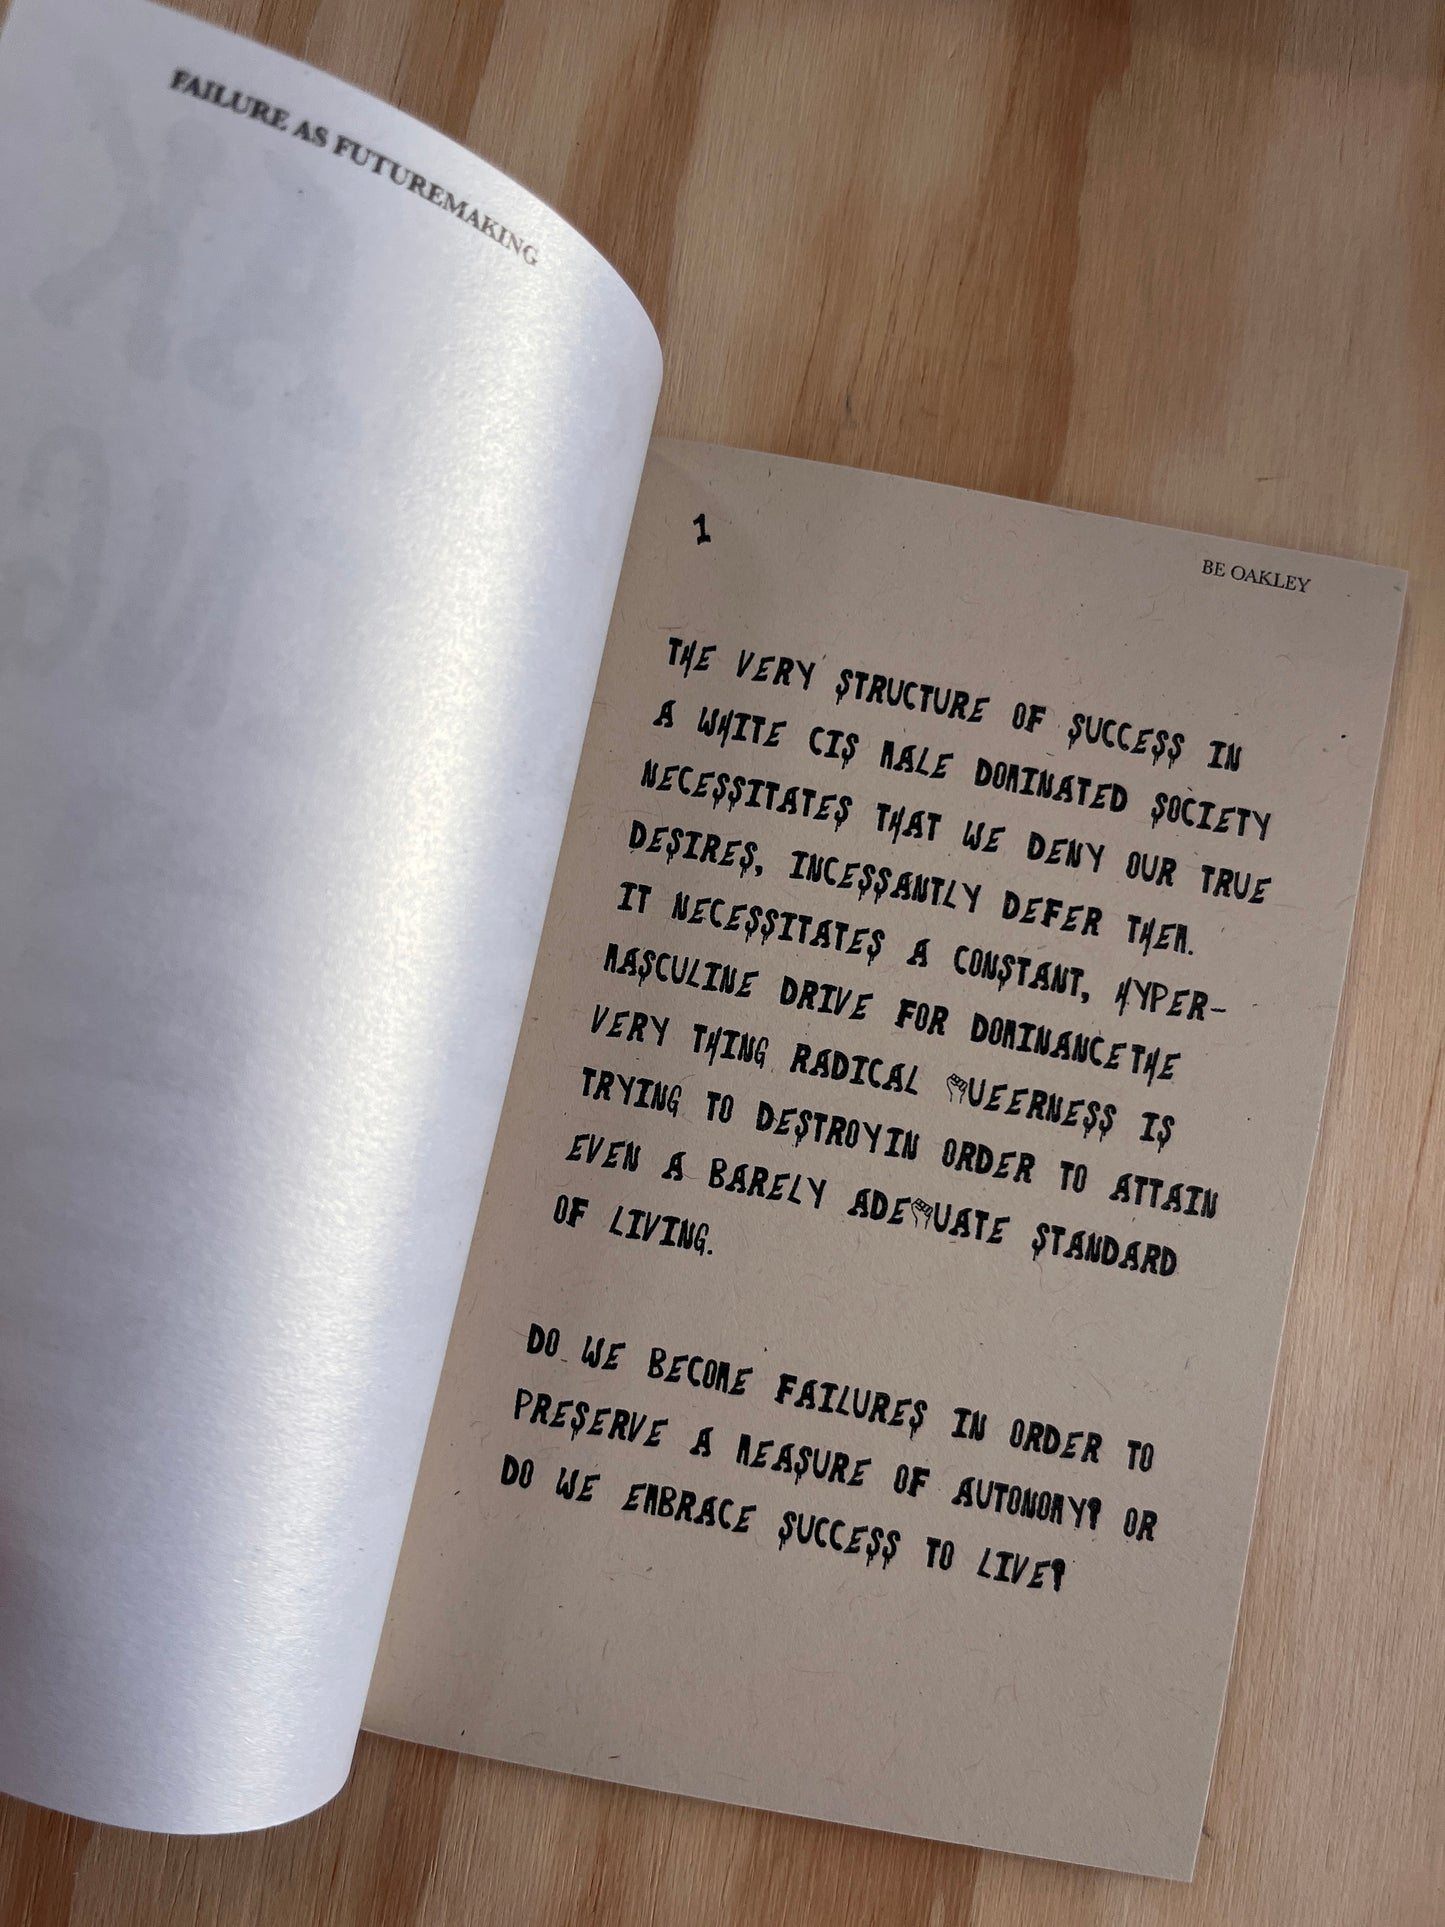 FAILURE AS FUTUREMAKING
1
BE OAKLEY
THE VERY STRUCTURE OF SUCCESS IN
A WHITE CIS MALE DOMINATED SOCIETY
NECESSITATES THAT WE DENY OUR TRUE
DESIRES, INCESSANTLY DEFER THEM.
IT NECESSITATES A CONSTANT, HYPER-
MASCULINE DRIVE FOR DOMINANCETHE
VERY THING RADICAL QUEERNESS IS
TRYING TO DESTROYIN ORDER TO ATTAIN
EVEN A BARELY ADEQUATE STANDARD
OF LIVING.
DO WE BECOME FAILURES IN ORDER TO
PRESERVE A MEASURE OF AUTONOMY? OR
DO WE EMBRACE SUCCESS TO LIVE?